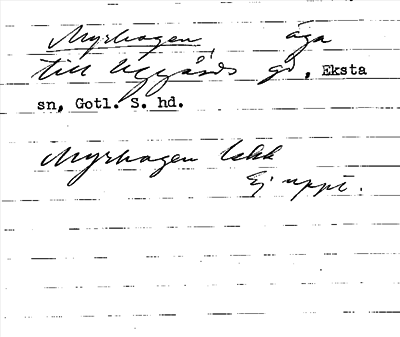 Myrhagen, äga
till Uggårds gd, Eksta
sn, Gotl. S. hd.
Myrhagen Ekk
Ej uppt.